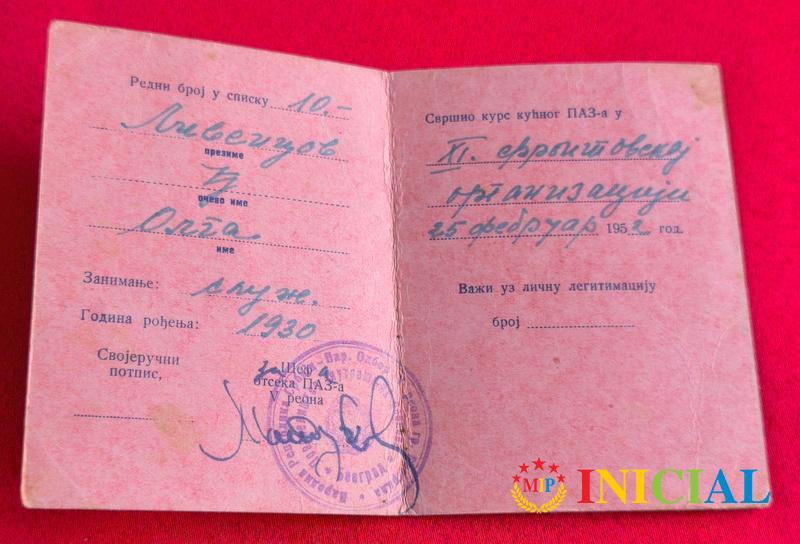 Редни број у списку 10.-
Ливенцов
презиме
очево име
Олга
име
Занимање: служ.
Година рођења: 1930
Својеручни
потпис,
за Шеф а
отсека ПАЗ-а
V реона
Свршио курс кућног ПАЗ-а у
XI. фронтовској
организацији
25 фебруар 1952 год.
Важи уз личну легитимацију
број
MIP INICIAL